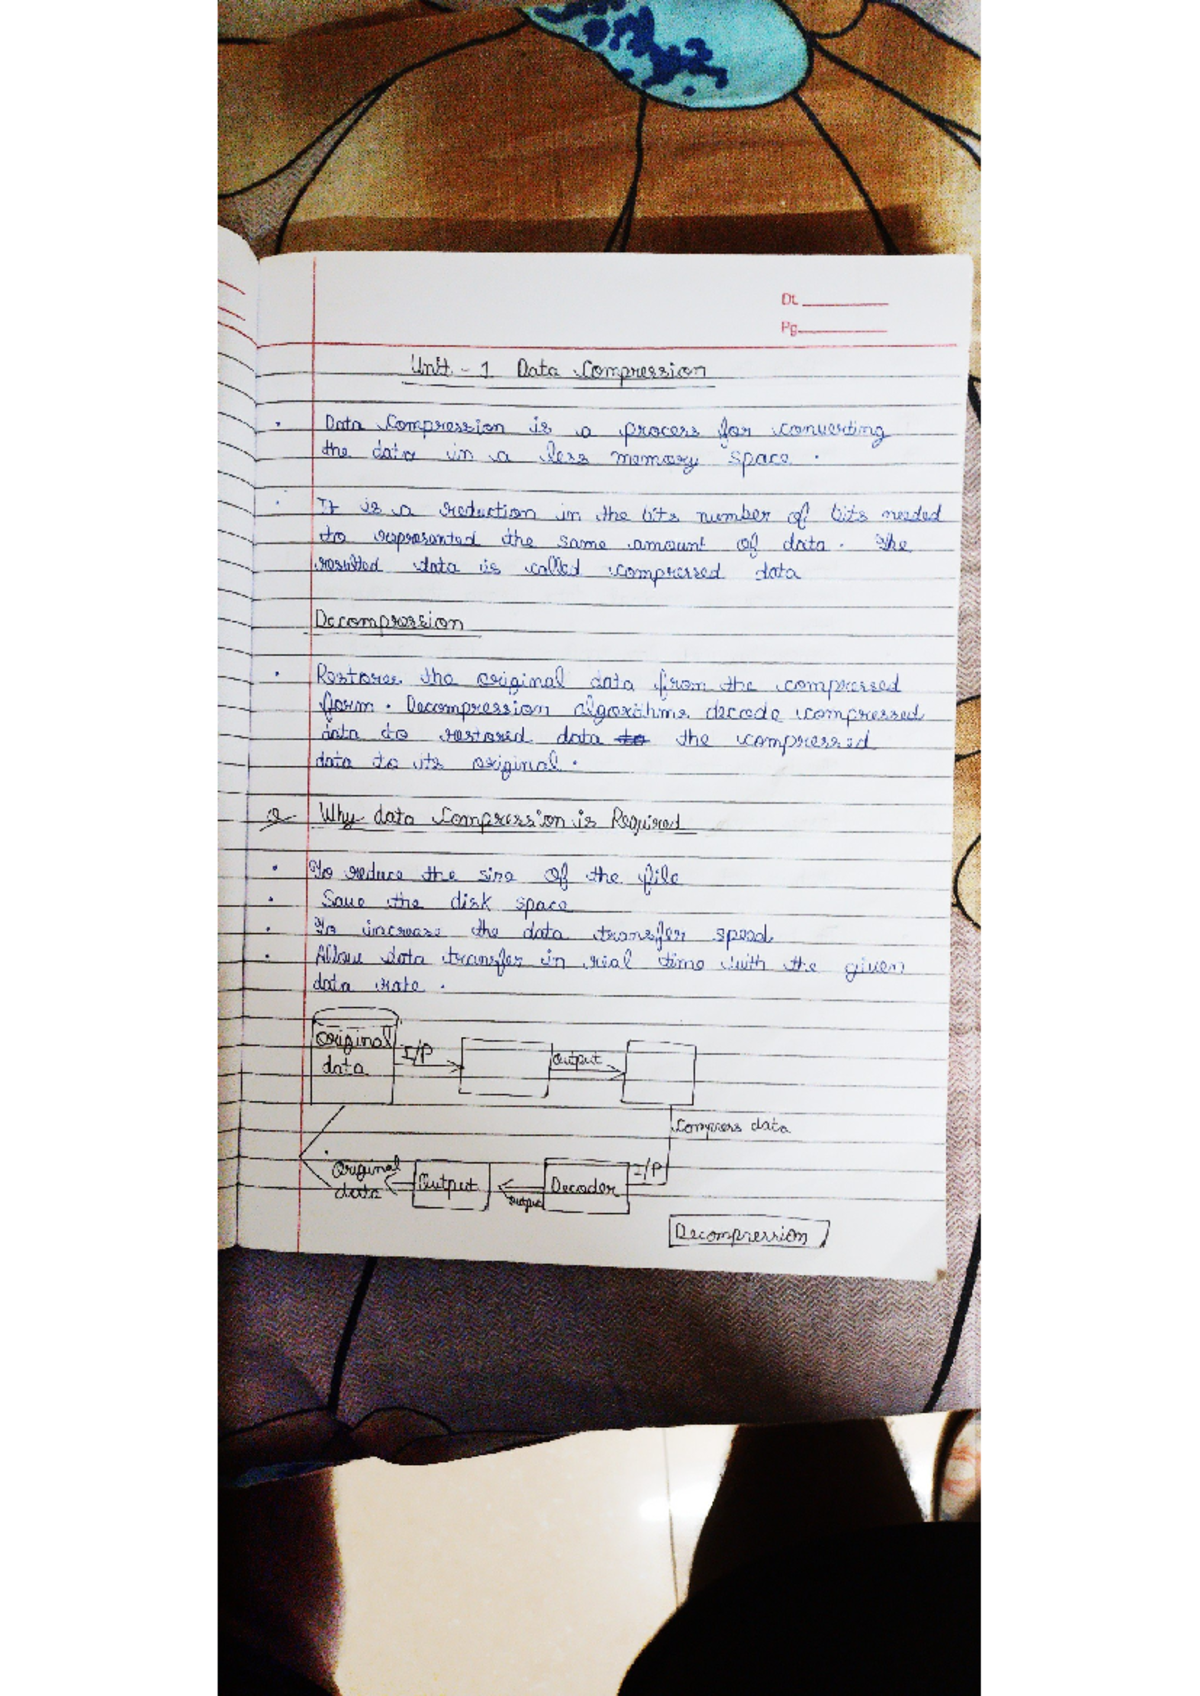 Dt.
Pg.
Unit - 1 Data Compression
• Data Compression is a process for converting
the data in a less memory space .
• It is a reduction in the bits number of bits needed
to represented the same amount of data . The
resulted data is called compressed data
Decompression
• Restores the original data from the compressed
form . Decompression algorithms decode compressed
data to restored data to the compressed
data to its original .
Q Why data Compression is Required
• To reduce the size of the file
• Save the disk space
• To increase the data transfer speed
• Allow data transfer in real time with the given
data rate .
Original
data
I/P
output
Compress data
I/P
Decoder
output
Output
Original
data
Decompression